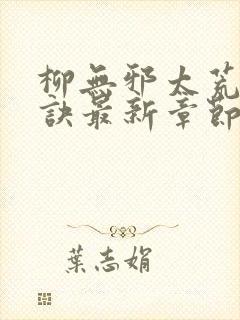 柳無邪太荒
訣最新章節
葉志娟